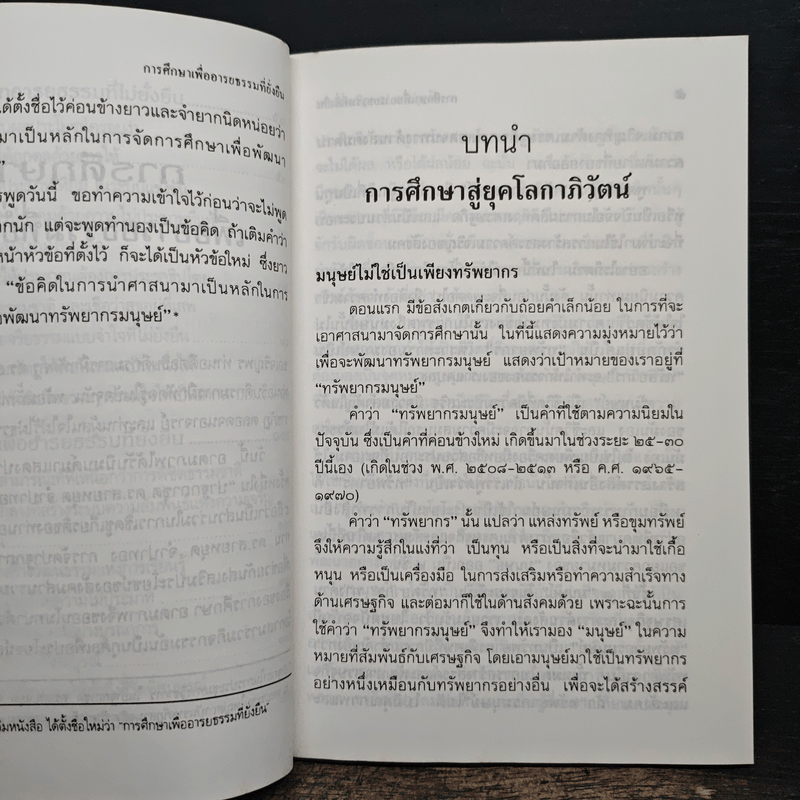 การศึกษาเพื่ออารยธรรมที่ยั่งยืน
ได้ตั้งชื่อไว้ค่อนข้างยาวและจำยากนิดหน่อยว่า
มาเป็นหลักในการจัดการศึกษาเพื่อพัฒนา
”
รพูดวันนี้ ขอทำความเข้าใจไว้ก่อนว่าจะไม่พูด
กนัก แต่จะพูดทำนองเป็นข้อคิด ถ้าเติมคำว่า
หน้าหัวข้อที่ตั้งไว้ ก็จะได้เป็นหัวข้อใหม่ ซึ่งยาว
“ข้อคิดในการนำศาสนามาเป็นหลักในการ
พัฒนาทรัพยากรมนุษย์”*
มหนังสือ ได้ตั้งชื่อใหม่ว่า “การศึกษาเพื่ออารยธรรมที่ยั่งยืน”
บทนำ
การศึกษาสู่ยุคโลกาภิวัตน์
มนุษย์ไม่ใช่เป็นเพียงทรัพยากร
ตอนแรก มีข้อสังเกตเกี่ยวกับถ้อยคำเล็กน้อย ในการที่จะ
เอาศาสนามาจัดการศึกษานั้น ในที่นี้แสดงความมุ่งหมายไว้ว่า
เพื่อจะพัฒนาทรัพยากรมนุษย์ แสดงว่าเป้าหมายของเราอยู่ที่
“ทรัพยากรมนุษย์”
คำว่า “ทรัพยากรมนุษย์” เป็นคำที่ใช้ตามความนิยมใน
ปัจจุบัน ซึ่งเป็นคำที่ค่อนข้างใหม่ เกิดขึ้นมาในช่วงระยะ ๒๕-๓๐
ปีนี้เอง (เกิดในช่วง พ.ศ. ๒๕๐๘-๒๕๑๓ หรือ ค.ศ. ๑๙๖๕-
๑๙๗๐)
คำว่า “ทรัพยากร” นั้น แปลว่า แหล่งทรัพย์ หรือขุมทรัพย์
จึงให้ความรู้สึกในแง่ที่ว่า เป็นทุน หรือเป็นสิ่งที่จะนำมาใช้เกื้อ
หนุน หรือเป็นเครื่องมือ ในการส่งเสริมหรือทำความสำเร็จทาง
ด้านเศรษฐกิจ และต่อมาก็ใช้ในด้านสังคมด้วย เพราะฉะนั้นการ
ใช้คำว่า “ทรัพยากรมนุษย์” จึงทำให้เรามอง “มนุษย์” ในความ
หมายที่สัมพันธ์กับเศรษฐกิจ โดยเอามนุษย์มาใช้เป็นทรัพยากร
อย่างหนึ่งเหมือนกับทรัพยากรอย่างอื่น เพื่อจะได้สร้างสรรค์